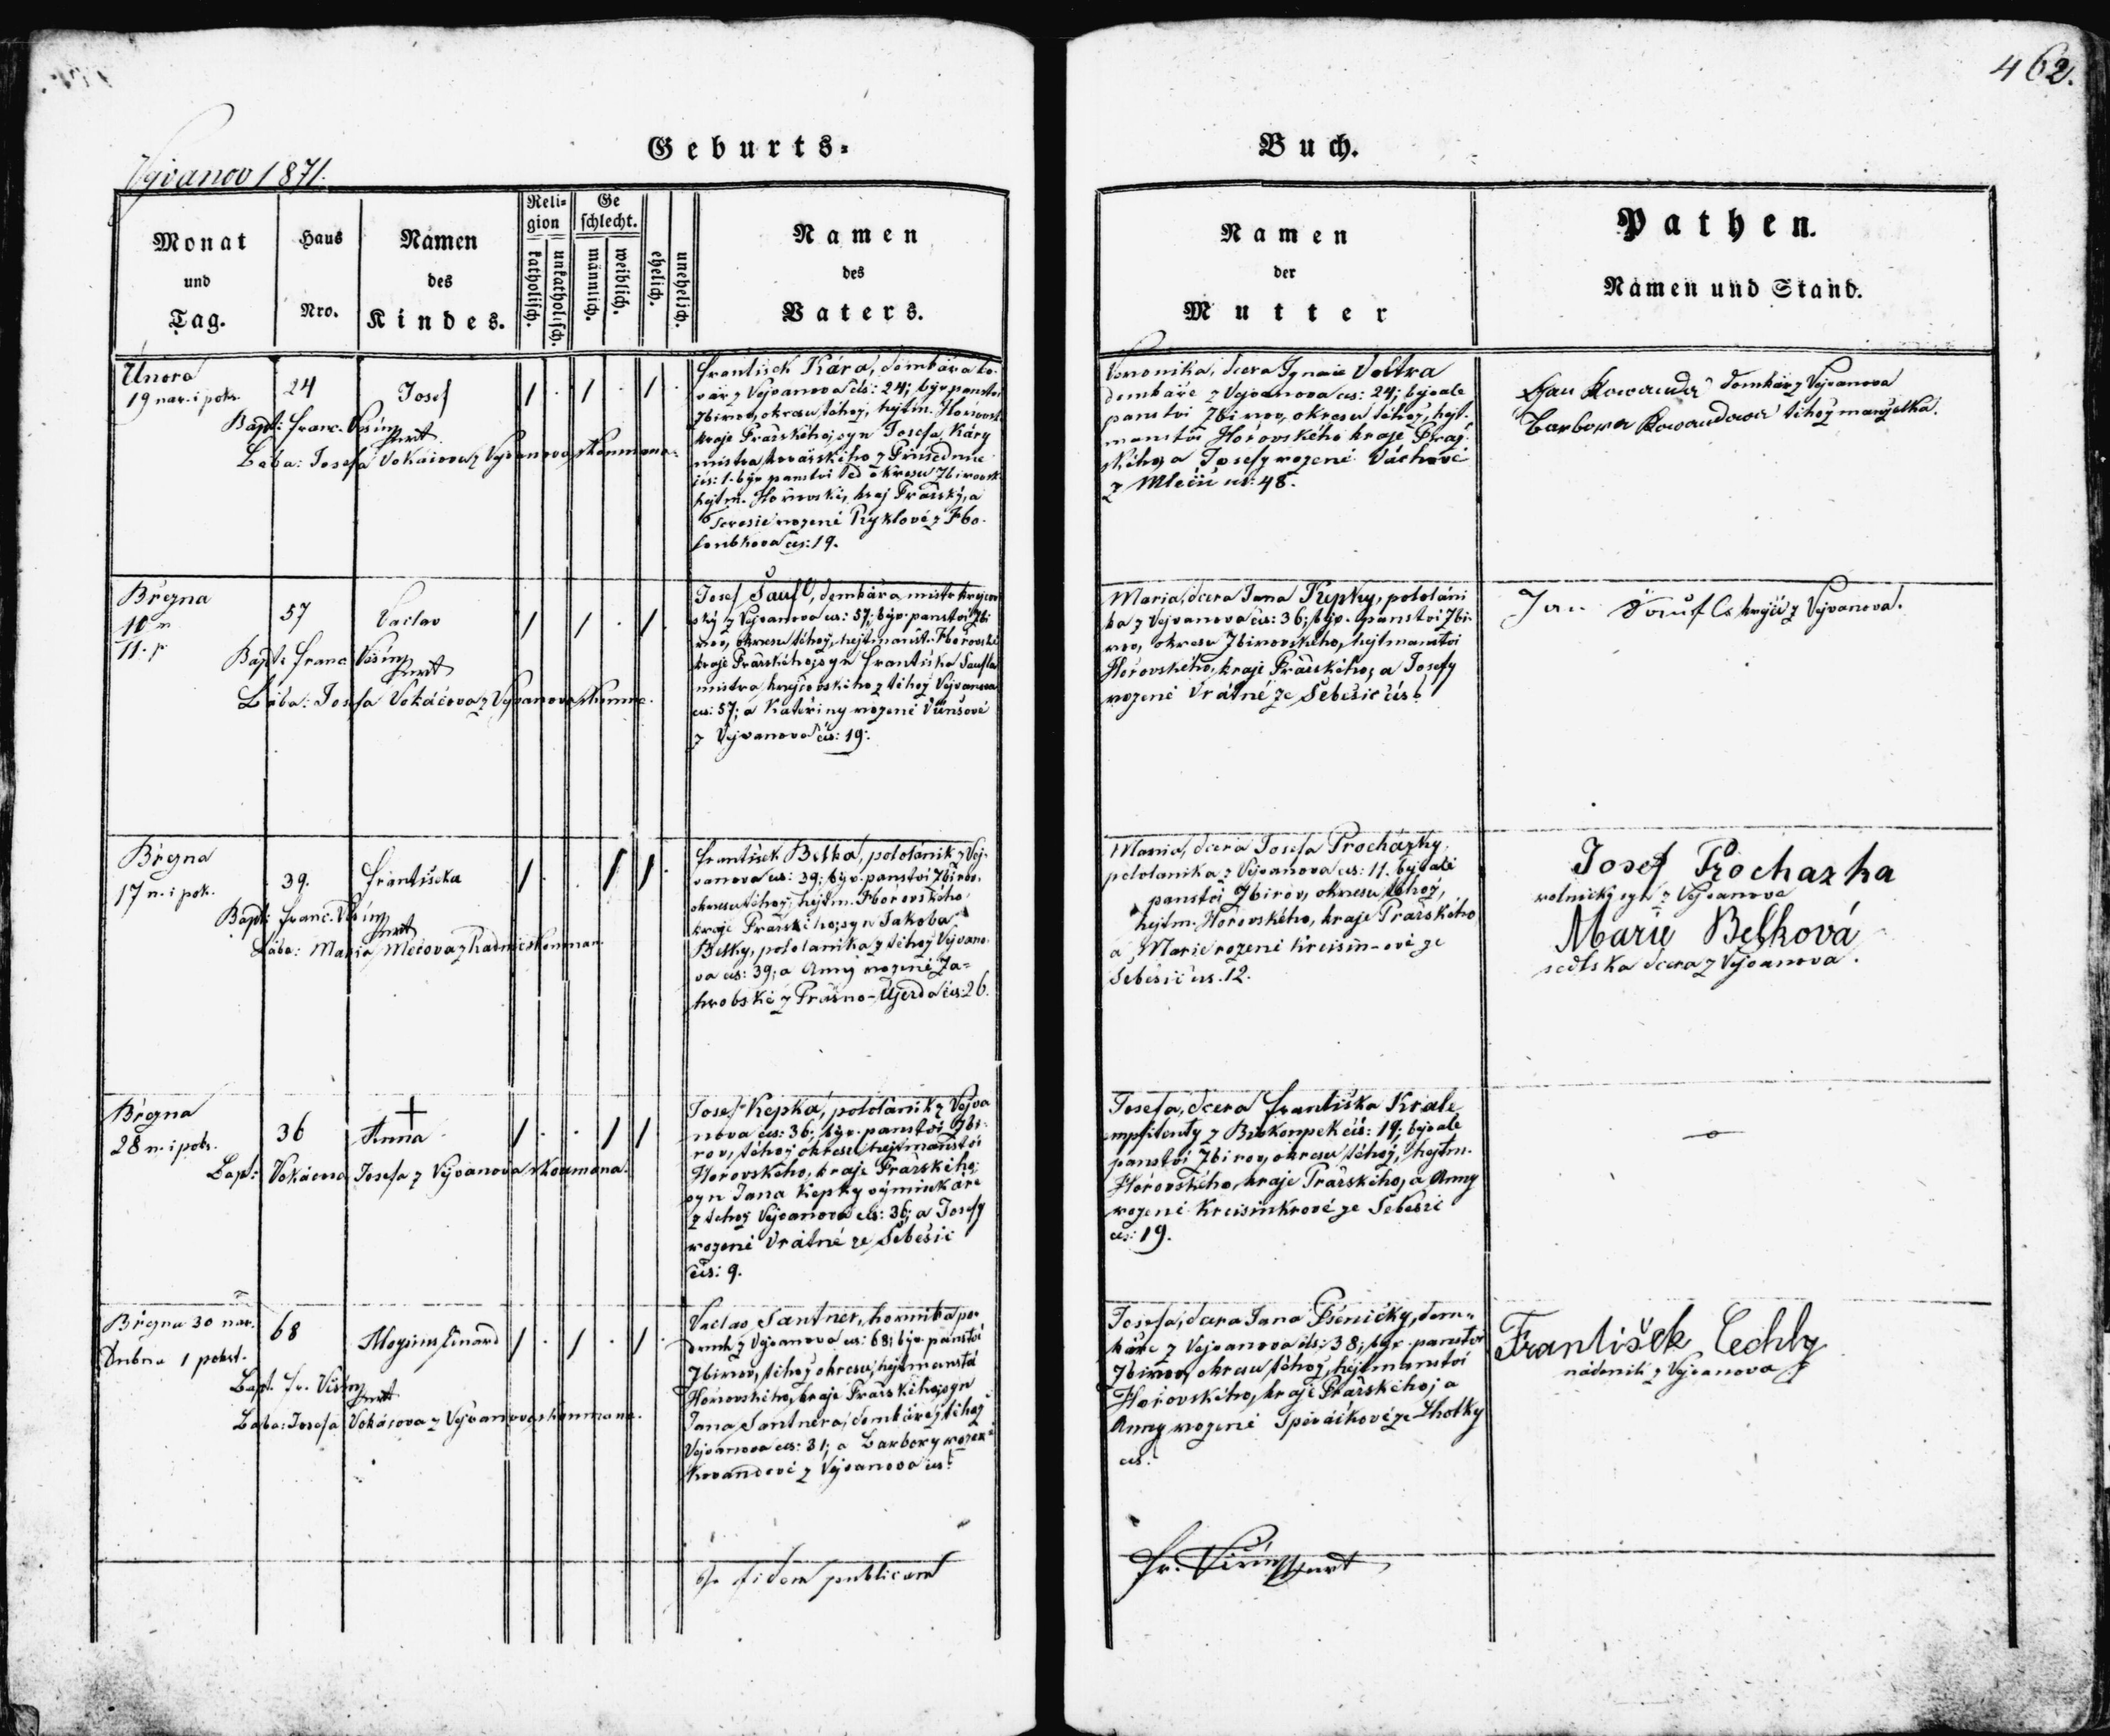 462.
Vejvanov 1871.
Geburts-
Buch.
Monat und Tag.
Haus Nro.
Namen des Kindes.
Religion
katholisch.
unkatholisch.
Geschlecht.
männlich.
weiblich.
ehelich.
unehelich.
Namen des Vaters.
Namen der Mutter
Pathen.
Namen und Stand.
Února
19 nar. i pokř.
24
Josef
Bapt: Franc.
Bába: Josefa Vokáčova z Vejvanova zkoumana.
František Kára, domkář a to-
vář z Vejvanova čís: 24; býv. panství
Zbirov, okresu téhož, hejtm. Hořovsk.
kraje Pražského; syn Josefa Káry
mistra kovářského z Příseдnic
čís: 1. býv. panství
hejtm. Hořovské, kraj Pražský, a
Teresie rozené Ryklové z Cho-
čís: 19.
Veronika, dcera Ignáce Voltra
domkáře z Vejvanova čís: 24; bývalé
panství Zbirov, okresu téhož, hejt-
manství Hořovského kraje Praž-
ského, a Josefy rozené Váchové
z Mlečic čís: 48.
Jan Kowanda domkář z Vejvanova
Barbora Kowandowa téhož manželka.
Března
10 n.
11. p.
57
Václav
Bapt: Franc.
Bába: Josefa Vokáčova z Vejvanova zkoum.
Josef Saufl, domkář a mistr krejčov-
ský z Vejvanova čís: 57; býv. panství Zbi-
rov, okresu téhož, hejtmanst. Hořovské
kraje Pražského; syn Františka Saufla
mistra krejčovského z téhož Vejvanova
čís: 57; a Kateřiny rozené Vünšové
z Vejvanova čís: 19.
Maria, dcera Jana Kepky, pololání-
ka z Vejvanova čís: 36; býv. panství Zbi-
rov, okresu Zbirovského, hejtmanství
Hořovského, kraje Pražského; a Josefy
rozené Vrátné ze Šebešic čís
Jan Saufl krejčí z Vejvanova.
Března
17 n. i pok.
39.
Františka
Bapt: Franc.
Bába: Maria Mečova z Radnic zkouman.
František Belka, pololáník z Vej-
vanova čís: 39; býv. panství Zbirov,
okresu téhož, hejtm. Hořovského
kraje Pražského; syn Jakoba
Belky, pololáníka z téhož Vejvano-
va čís: 39; a Anny rozené Za-
hrobské z Prašno-Újezda čís: 26.
Maria, dcera Josefa Procházky,
pololáníka z Vejvanova čís: 11. bývalé
panství Zbirov, okresu téhož,
hejtm. Hořovského, kraje Pražského
a Marie rozené ze
Šebešic čís. 12.
Josef Prochazka
rolnický syn z Vejvanova
Marie Belková
sedlska dcera z Vejvanova.
Března
28 n. i pokř.
36
Anna
Bapt: Vokáčova Josefa z Vejvanova zkoumana.
Josef Kepka, pololáník z Vejva-
nova čís: 36; býv. panství Zbi-
rov, téhož okresu, hejtmanství
Hořovského, kraje Pražského;
syn Jana Kepky výminkáře
z téhož Vejvanova čís: 36; a Josefy
rozené Vrátné ze Šebešic
čís: 9.
Josefa, dcera Františka Krále
z čís: 19; bývalé
panství Zbirov, okresu téhož, hejtm.
Hořovského, kraje Pražského, a Anny
rozené ze Šebešic
čís: 19.
Března 30 nar.
Dubna 1 pokřt.
68
Aloysius
Bapt. Fr.
Bába: Josefa Vokáčova z Vejvanova zkoumana.
Václav Santner,
z Vejvanova čís: 68; býv. panství
Zbirov, téhož okresu, hejtmanství
Hořovského, kraje Pražského; syn
Jana Santnera, domkáře z téhož
Vejvanova čís: 31; a Barbory rozené
Kovandové z Vejvanova čís:
Josefa, dcera Jana Pšeničky, dom-
káře z Vejvanova čís: 38; býv. panství
Zbirov, okresu téhož, hejtmanství
Hořovského, kraje Pražského; a
Anny rozené Speváčkové ze Lhotky
čís.
František Cechly
nádeník z Vejvanova
fidem publicam
Fr.